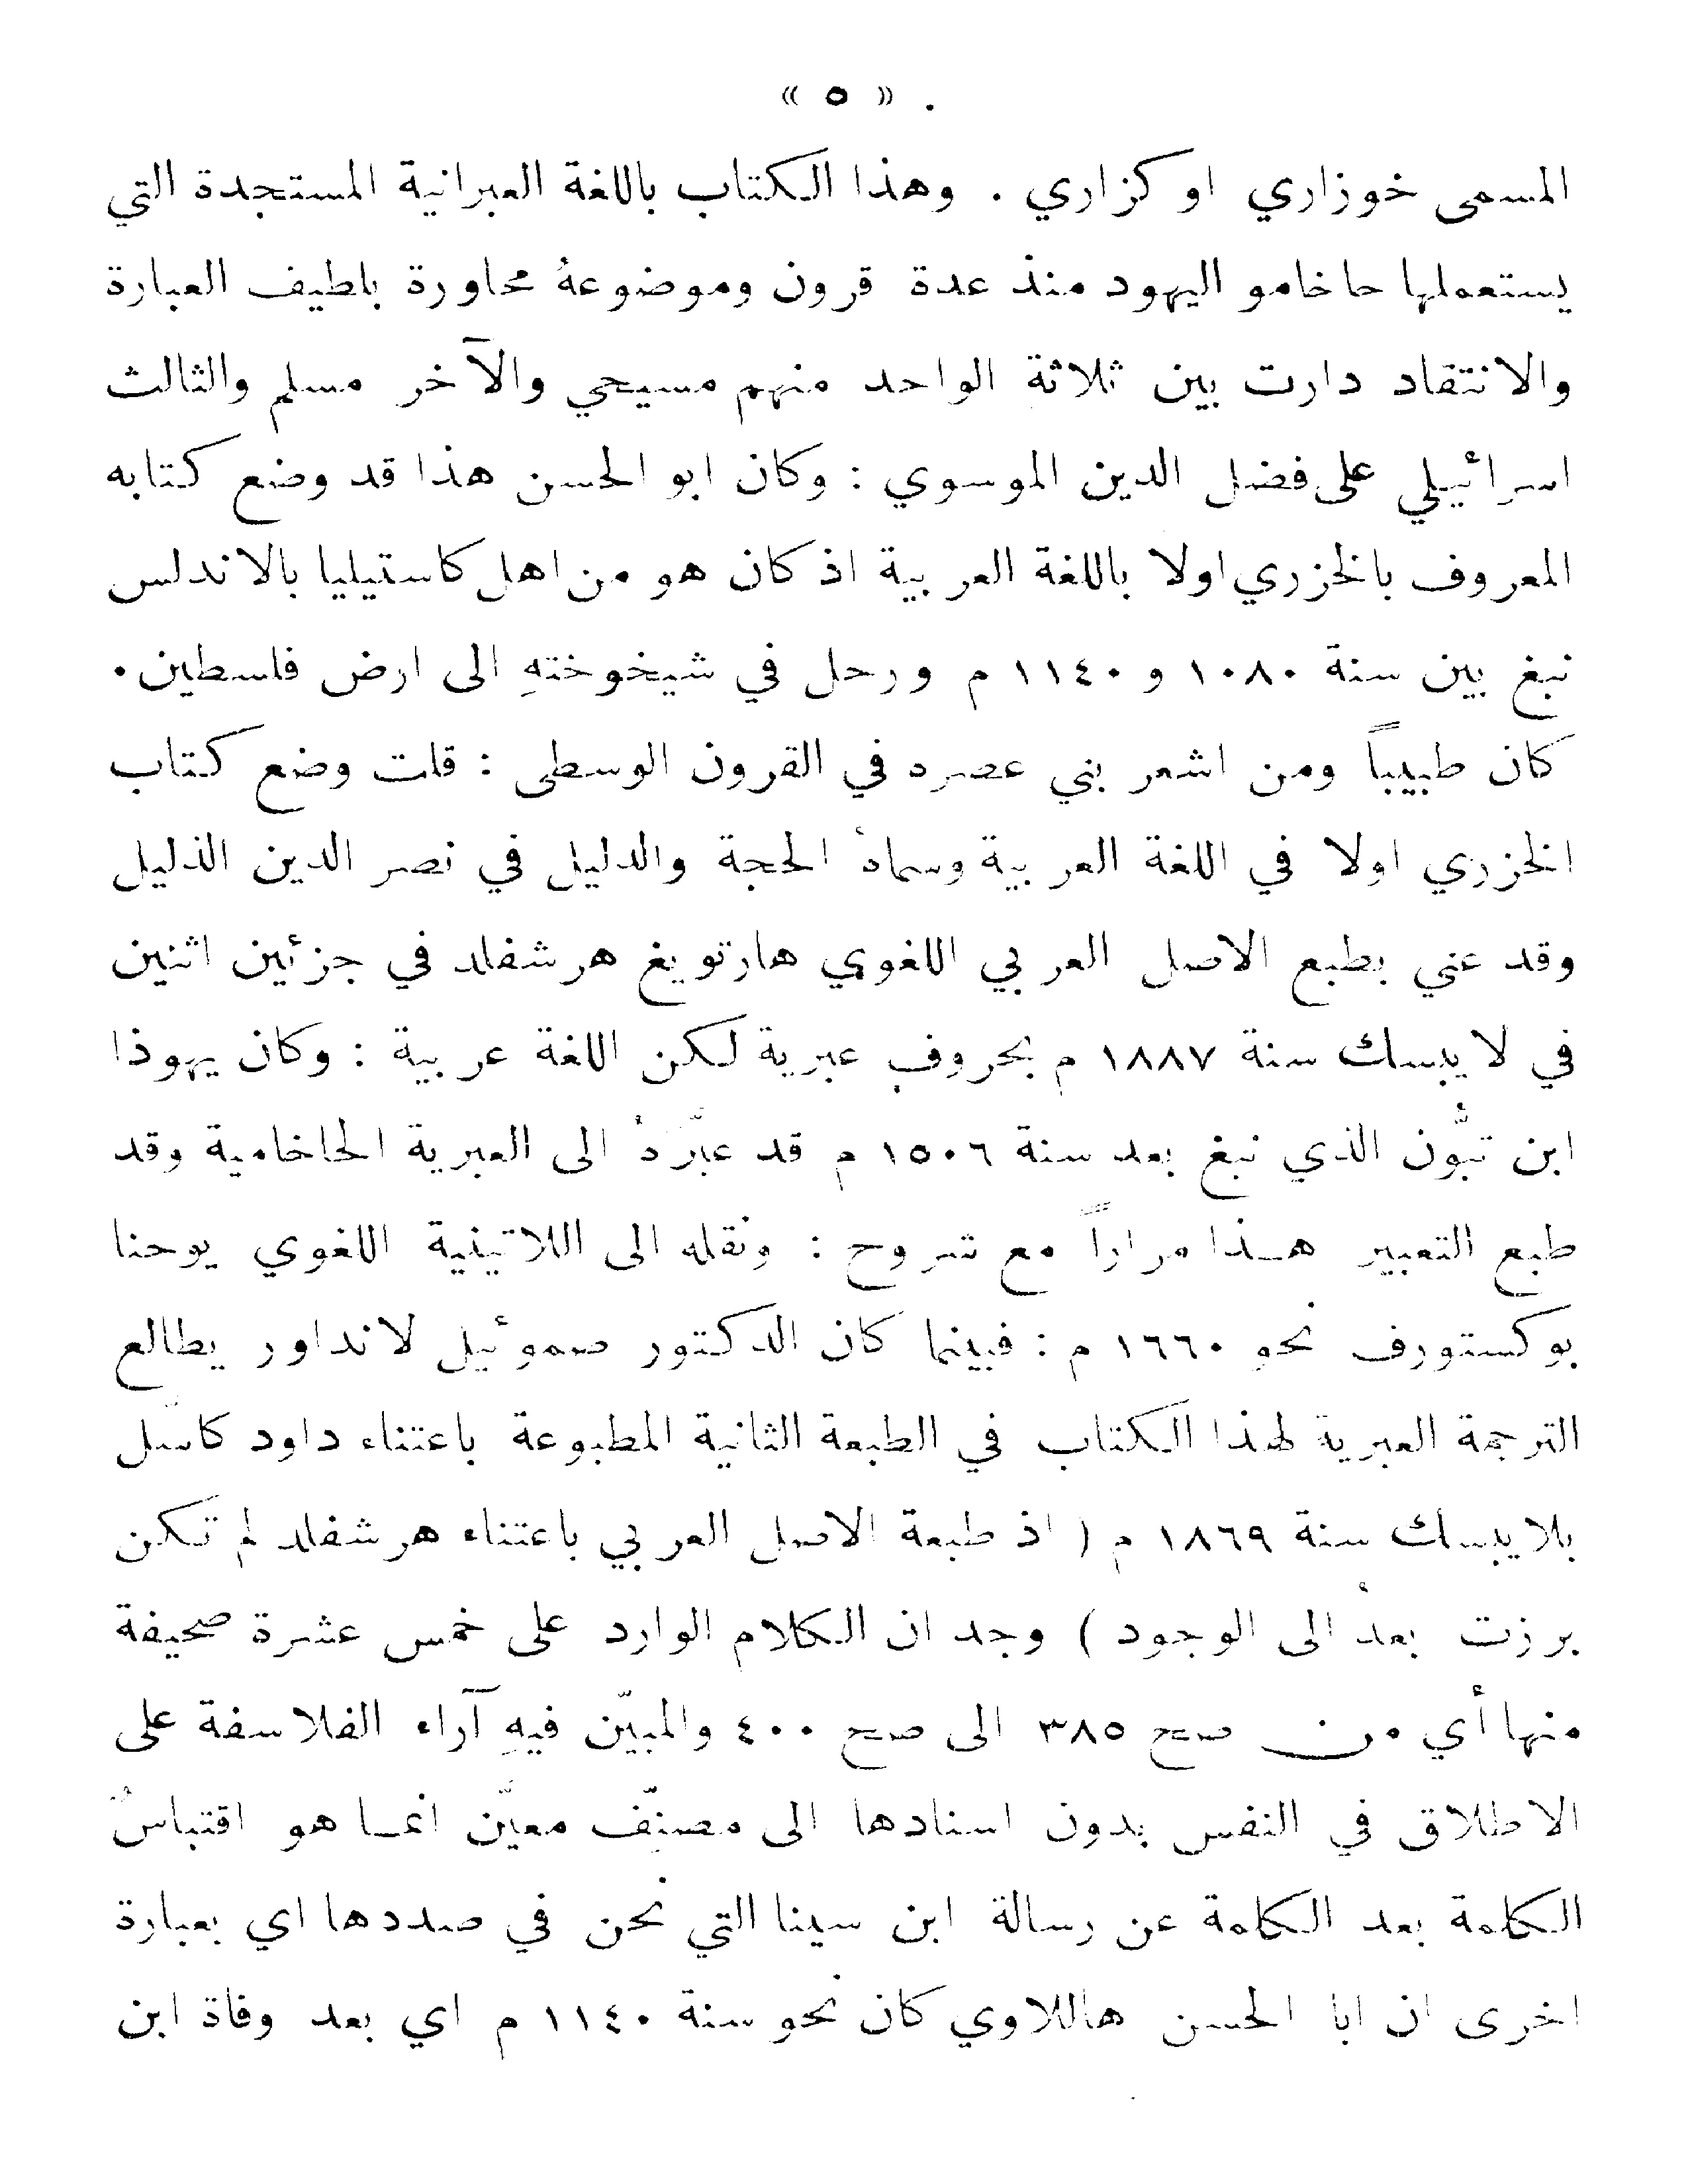 « ٥ » .
المسمى خوزاري او كزاري . وهذا الكتاب باللغة العبرانية المستجدة التي
يستعملها حاخامو اليهود منذ عدة قرون وموضوعهُ محاورة بلطيف العبارة
والانتقاد دارت بين ثلاثة الواحد منهم مسيحي والآخر مسلم والثالث
اسرائيلي على فضل الدين الموسوي : وكان ابو الحسن هذا قد وضع كتابه
المعروف بالخزري اولا باللغة العربية اذ كان هو من اهل كاستيليا بالاندلس
نبغ بين سنة ١٠٨٠ و ١١٤٠ م ورحل في شيخوختهِ الى ارض فلسطين .
كان طبيباً ومن اشعر بني عصره في القرون الوسطى : قلت وضع كتاب
الخزري اولا في اللغة العربية وسماهُ الحجة والدليل في نصر الدين الذليل
وقد عني بطبع الاصل العربي اللغوي هارتويغ هرشفلد في جزئين اثنين
في لايبسك سنة ١٨٨٧ م بحروف عبرية لكن اللغة عربية : وكان يهوذا
ابن تبُّون الذي نبغ بعد سنة ١٥٠٦ م قد عبَّرَهُ الى العبرية الحاخامية وقد
طبع التعبير هـذا مراراً مع شروح : ونقله الى اللاتينية اللغوي يوحنا
بوكستورف نحو ١٦٦٠ م : فبينما كان الدكتور صموئيل لانداور يطالع
الترجمة العبرية لهذا الكتاب في الطبعة الثانية المطبوعة باعتناء داود كاسّل
بلايبسك سنة ١٨٦٩ م ( اذ طبعة الاصل العربي باعتناء هرشفلد لم تكن
برزت بعدُ الى الوجود ) وجد ان الكلام الوارد على خمس عشرة صحيفة
منها أي من صح ٣٨٥ الى صح ٤٠٠ والمبيّن فيهِ آراء الفلاسفة على
الاطلاق في النفس بدون اسنادها الى مصنِّف معيَّن انمـا هو اقتباسٌ
الكلمة بعد الكلمة عن رسالة ابن سينا التي نحن في صددها اي بعبارة
اخرى ان ابا الحسن هاللاوي كان نحو سنة ١١٤٠ م اي بعد وفاة ابن